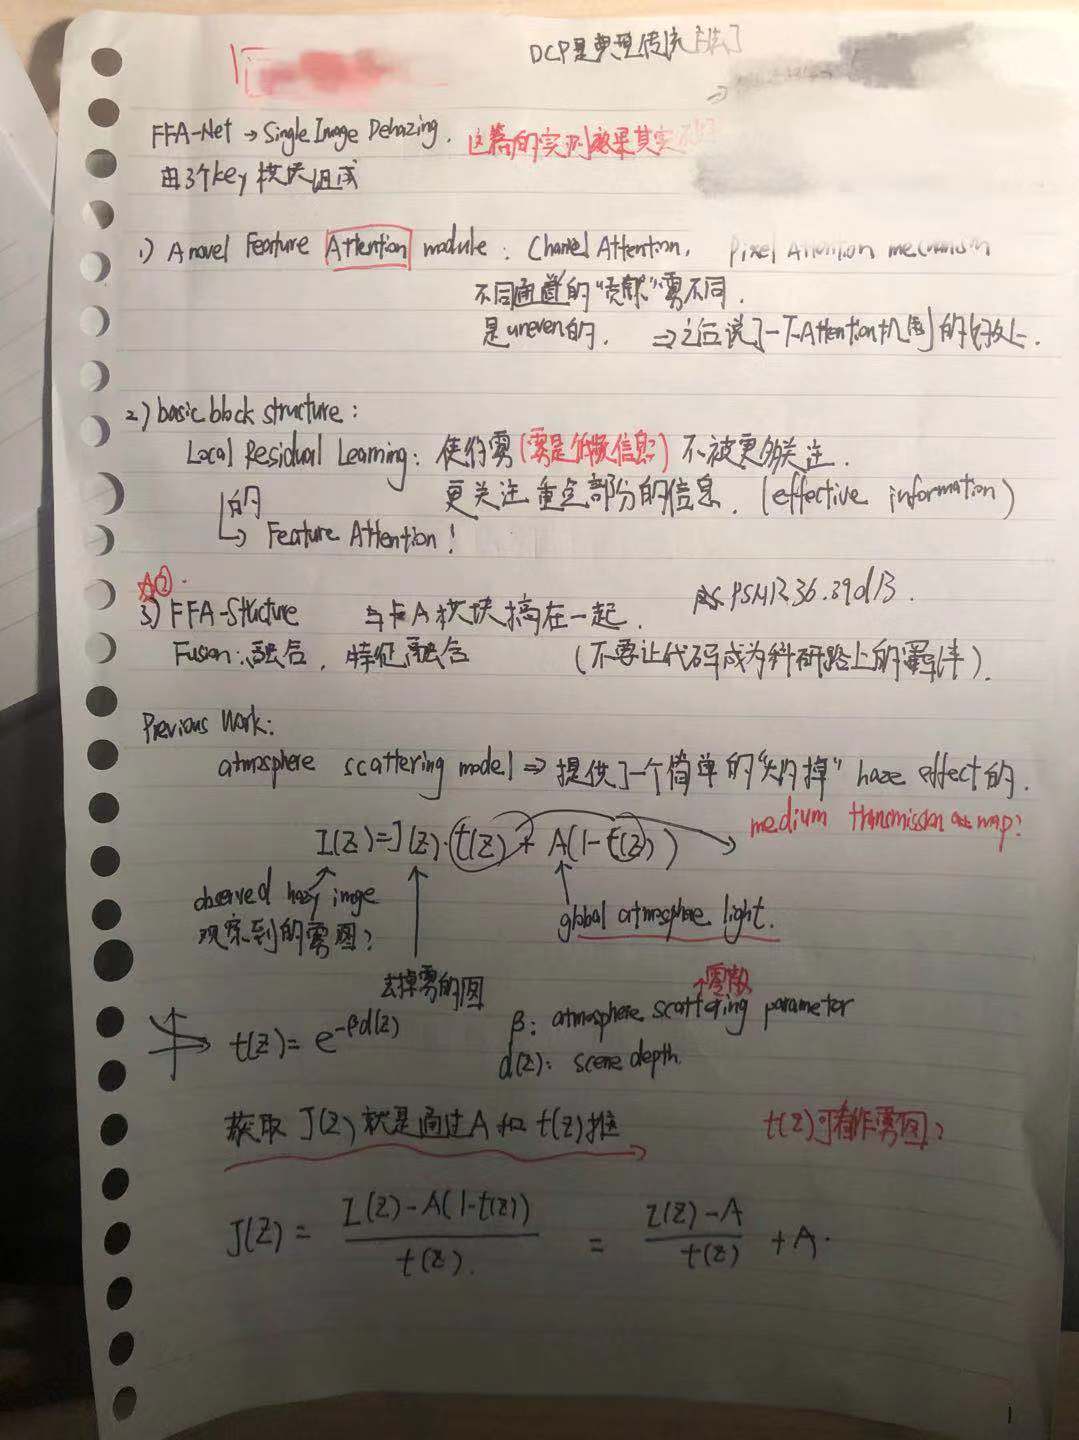 DCP是典型传统方法
FFA-Net → Single Image Dehazing. 这篇的实测效果其实
由3个key模块组成
1) A novel Feature Attention module: Channel Attention, Pixel Attention mechanism
不同通道的"贡献"雾不同.
是uneven的. ⇒之后说了一下Attention机制的好处.
2) basic block structure:
Local Residual Learning: 使得雾(雾是低频信息)不被更多关注.
更关注重点部分的信息. (effective information)
的
↳ Feature Attention!
☆②.
3) FFA-Structure 与FA模块搞在一起. PSNR 36.39dB.
Fusion: 融合, 特征融合 (不要让代码成为科研路上的羁绊).
Previous Work:
atmosphere scattering model ⇒ 提供了一个简单的" 掉" haze effect的.
medium transmission map?
I(z)=J(z)·t(z)+A(1-t(z))
observed hazy image
观察到的雾图?
global atmosphere light.
去掉雾的图
↑零散
t(z)=e^{-βd(z)} β: atmosphere scattering parameter
d(z): scene depth.
获取J(z)就是通过A和t(z)推 t(z)可看作雾图?
J(z) = \frac{I(z)-A(1-t(z))}{t(z)} = \frac{I(z)-A}{t(z)} + A.
1